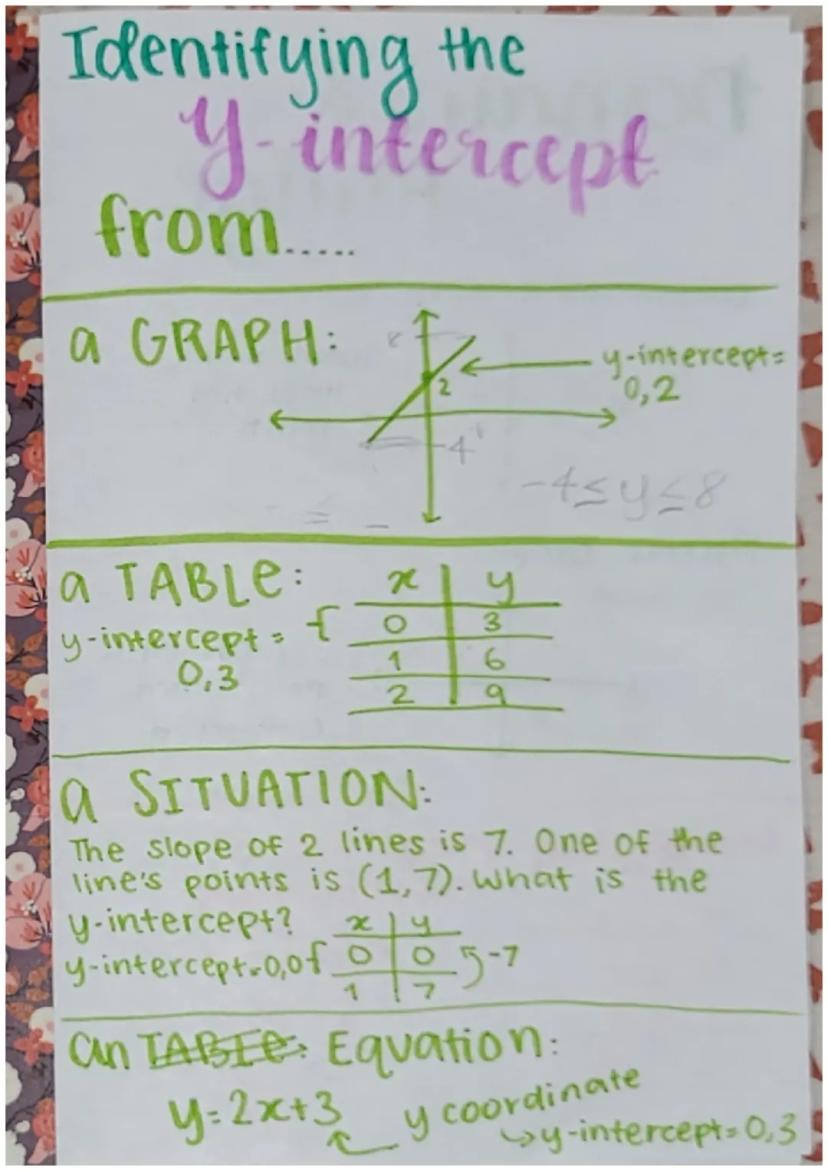 Identifying the
y-intercept
from.....
a GRAPH:
y-intercept=
0,2
2
-4
-4≤y≤8
a TABLE:
x y
y-intercept =
0,3
0 3
1 6
2 9
a SITUATION:
The slope of 2 lines is 7. One of the
line's points is (1,7). What is the
y-intercept?
x y
y-intercept=0,0
0 0
-7
1 7
an TABLE: Equation:
y=2x+3
y coordinate
y-intercept=0,3